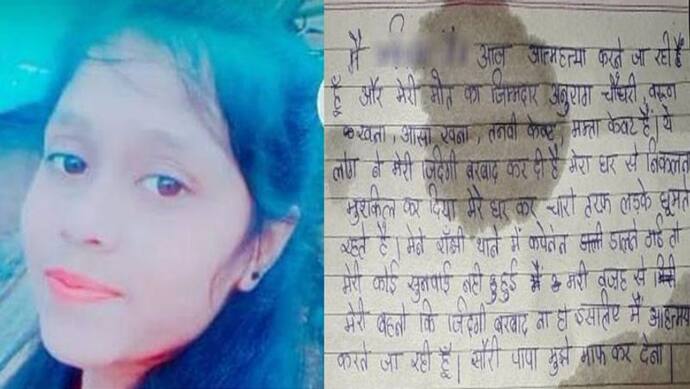 मै आज आत्महत्या करने जा रही है
हूँ और मेरी मौत का जिम्मदार अनुराग चौधरी वरुण
खन्ना, आसा खन्ना, तनवी केवट, ममता केवट है। ये
लोग ने मेरी जिंदगी बरवाद कर दी है मेरा घर से निकलना
मुशकिल कर दिया मेरे घर कर चारो तरफ लडके घूमते
रहते है। मेने राँझी थाने में कंपेलेंट डालने गई तो
मेरी कोई सुनवाई नही हुई मरी वजह से
मेरी बहनो कि जिदंगी बरवाद ना हो इसलिए मैं
करने जा रही हूँ। सॉरी पापा मुझे माफ कर देना।